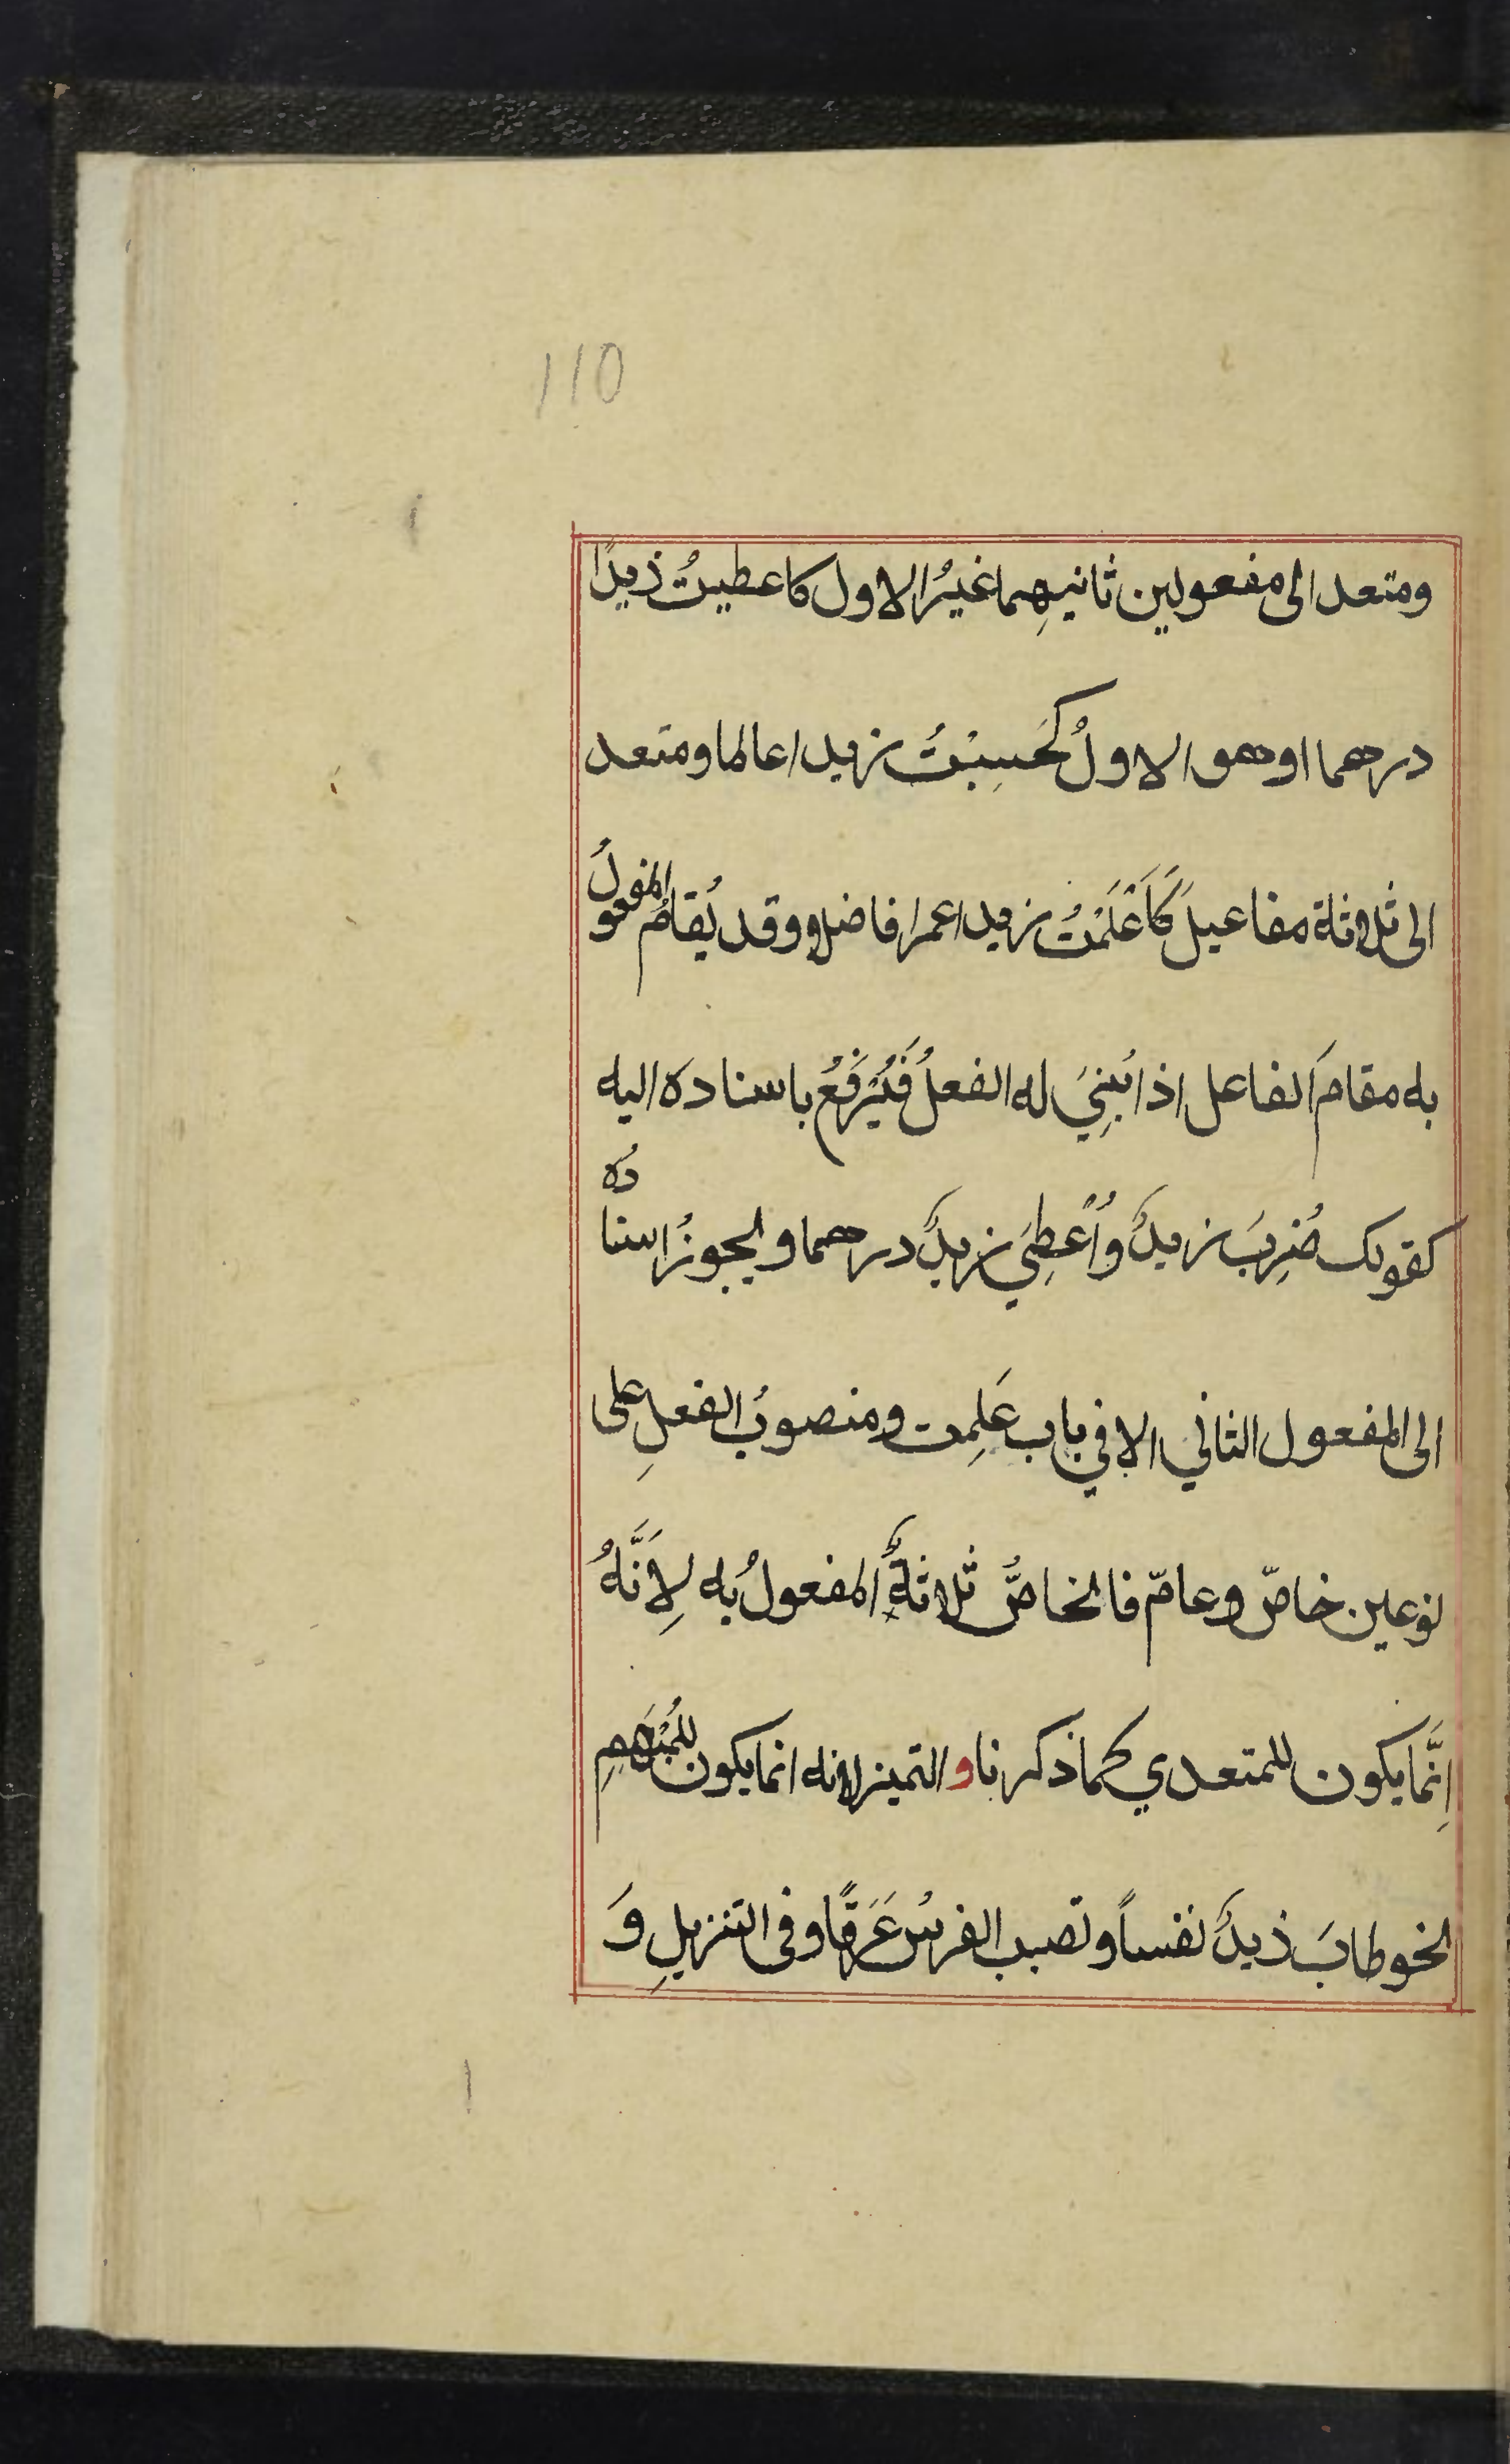 110
ومتعد الى مفعولين ثانيهِما غيرُ الاول كاعطيتُ ذيدًا
درهما اوهو الاولُ كَحَسِبْتُ زيدا عالما ومتعد
الى ثلاثلة مفاعيلَ كَاَعْلَمْتُ زيدا عمرا فاضلا وقد يُقامُ المفعولُ
به مقامَ الفاعل اذا بُنِيَ له الفعلُ فَيُرْفَعُ باسناده اليه
كقولك ضُرِبَ زيدٌ وأُعْطِيَ زيدٌ درهما ويجوزُ اسنادُه
الى المفعول الثاني الا في باب عَلِمت ومنصوبُ الفعلِ على
نوعين خاصّ وعامّ فالخاصُّ ثلاثةٌ المفعولُ به لِاَنَّهُ
اِنَّما يكون للمتعدي كما ذكرنا و التميز لانه انما يكون للمُبْهَمِ
نحو طابَ ذيدٌ نفساً وتصبب الفرسُ عَرَقًا وفى التنزيلِ وَ